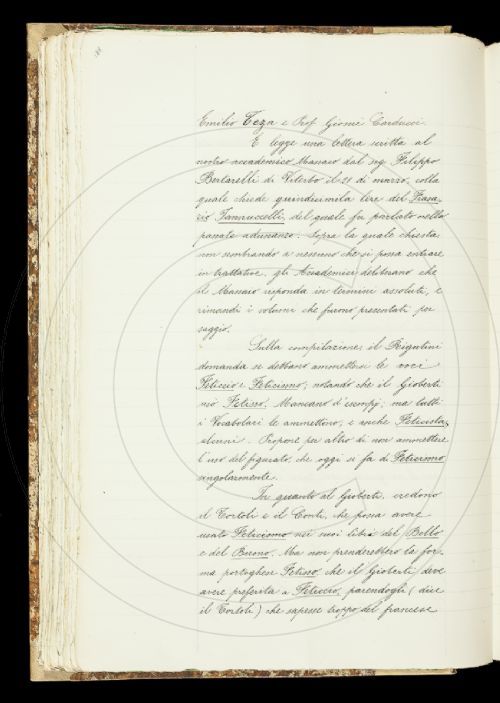 Emilio Teza e Prof. Giosuè Carducci.
E legge una lettera scritta al
nostro accademico Manaio dal sig. Filippo
Bertarelli di Viterbo il 21 di marzo, colla
quale chiede quindicimila lire del Frasa-
rio Jannuccelli, del quale fu parlato nella
passata adunanza. Sopra la quale chiesta
non sembrando a nessuno che si possa entrare
in trattative, gli Accademici deliberano che
il Manaio risponda in termini assoluti, e
rimandi i volumi che furono presentati per
saggio.
Sulla compilazione il Rigutini
domanda se debbano ammettersi le voci
Feticcio e Feticismo; notando che il Gioberti
usò Fetisso. Mancano d'esempj, ma tutti
i Vocabolari le ammettono; e anche Feticista,
alcuni. Propone per altro di non ammettere
l'uso del figurato, che oggi si fa di Feticismo
singolarmente.
In quanto al Gioberti, credono
il Tortoli e il Conti, che possa avere
usato Feticismo nei suoi libri del Bello
e del Buono. Ma non prenderebbero la for-
ma portoghese Fetisso, che il Gioberti deve
avere preferita a Feticcio, parendogli (dice
il Tortoli) che sapesse troppo del francese